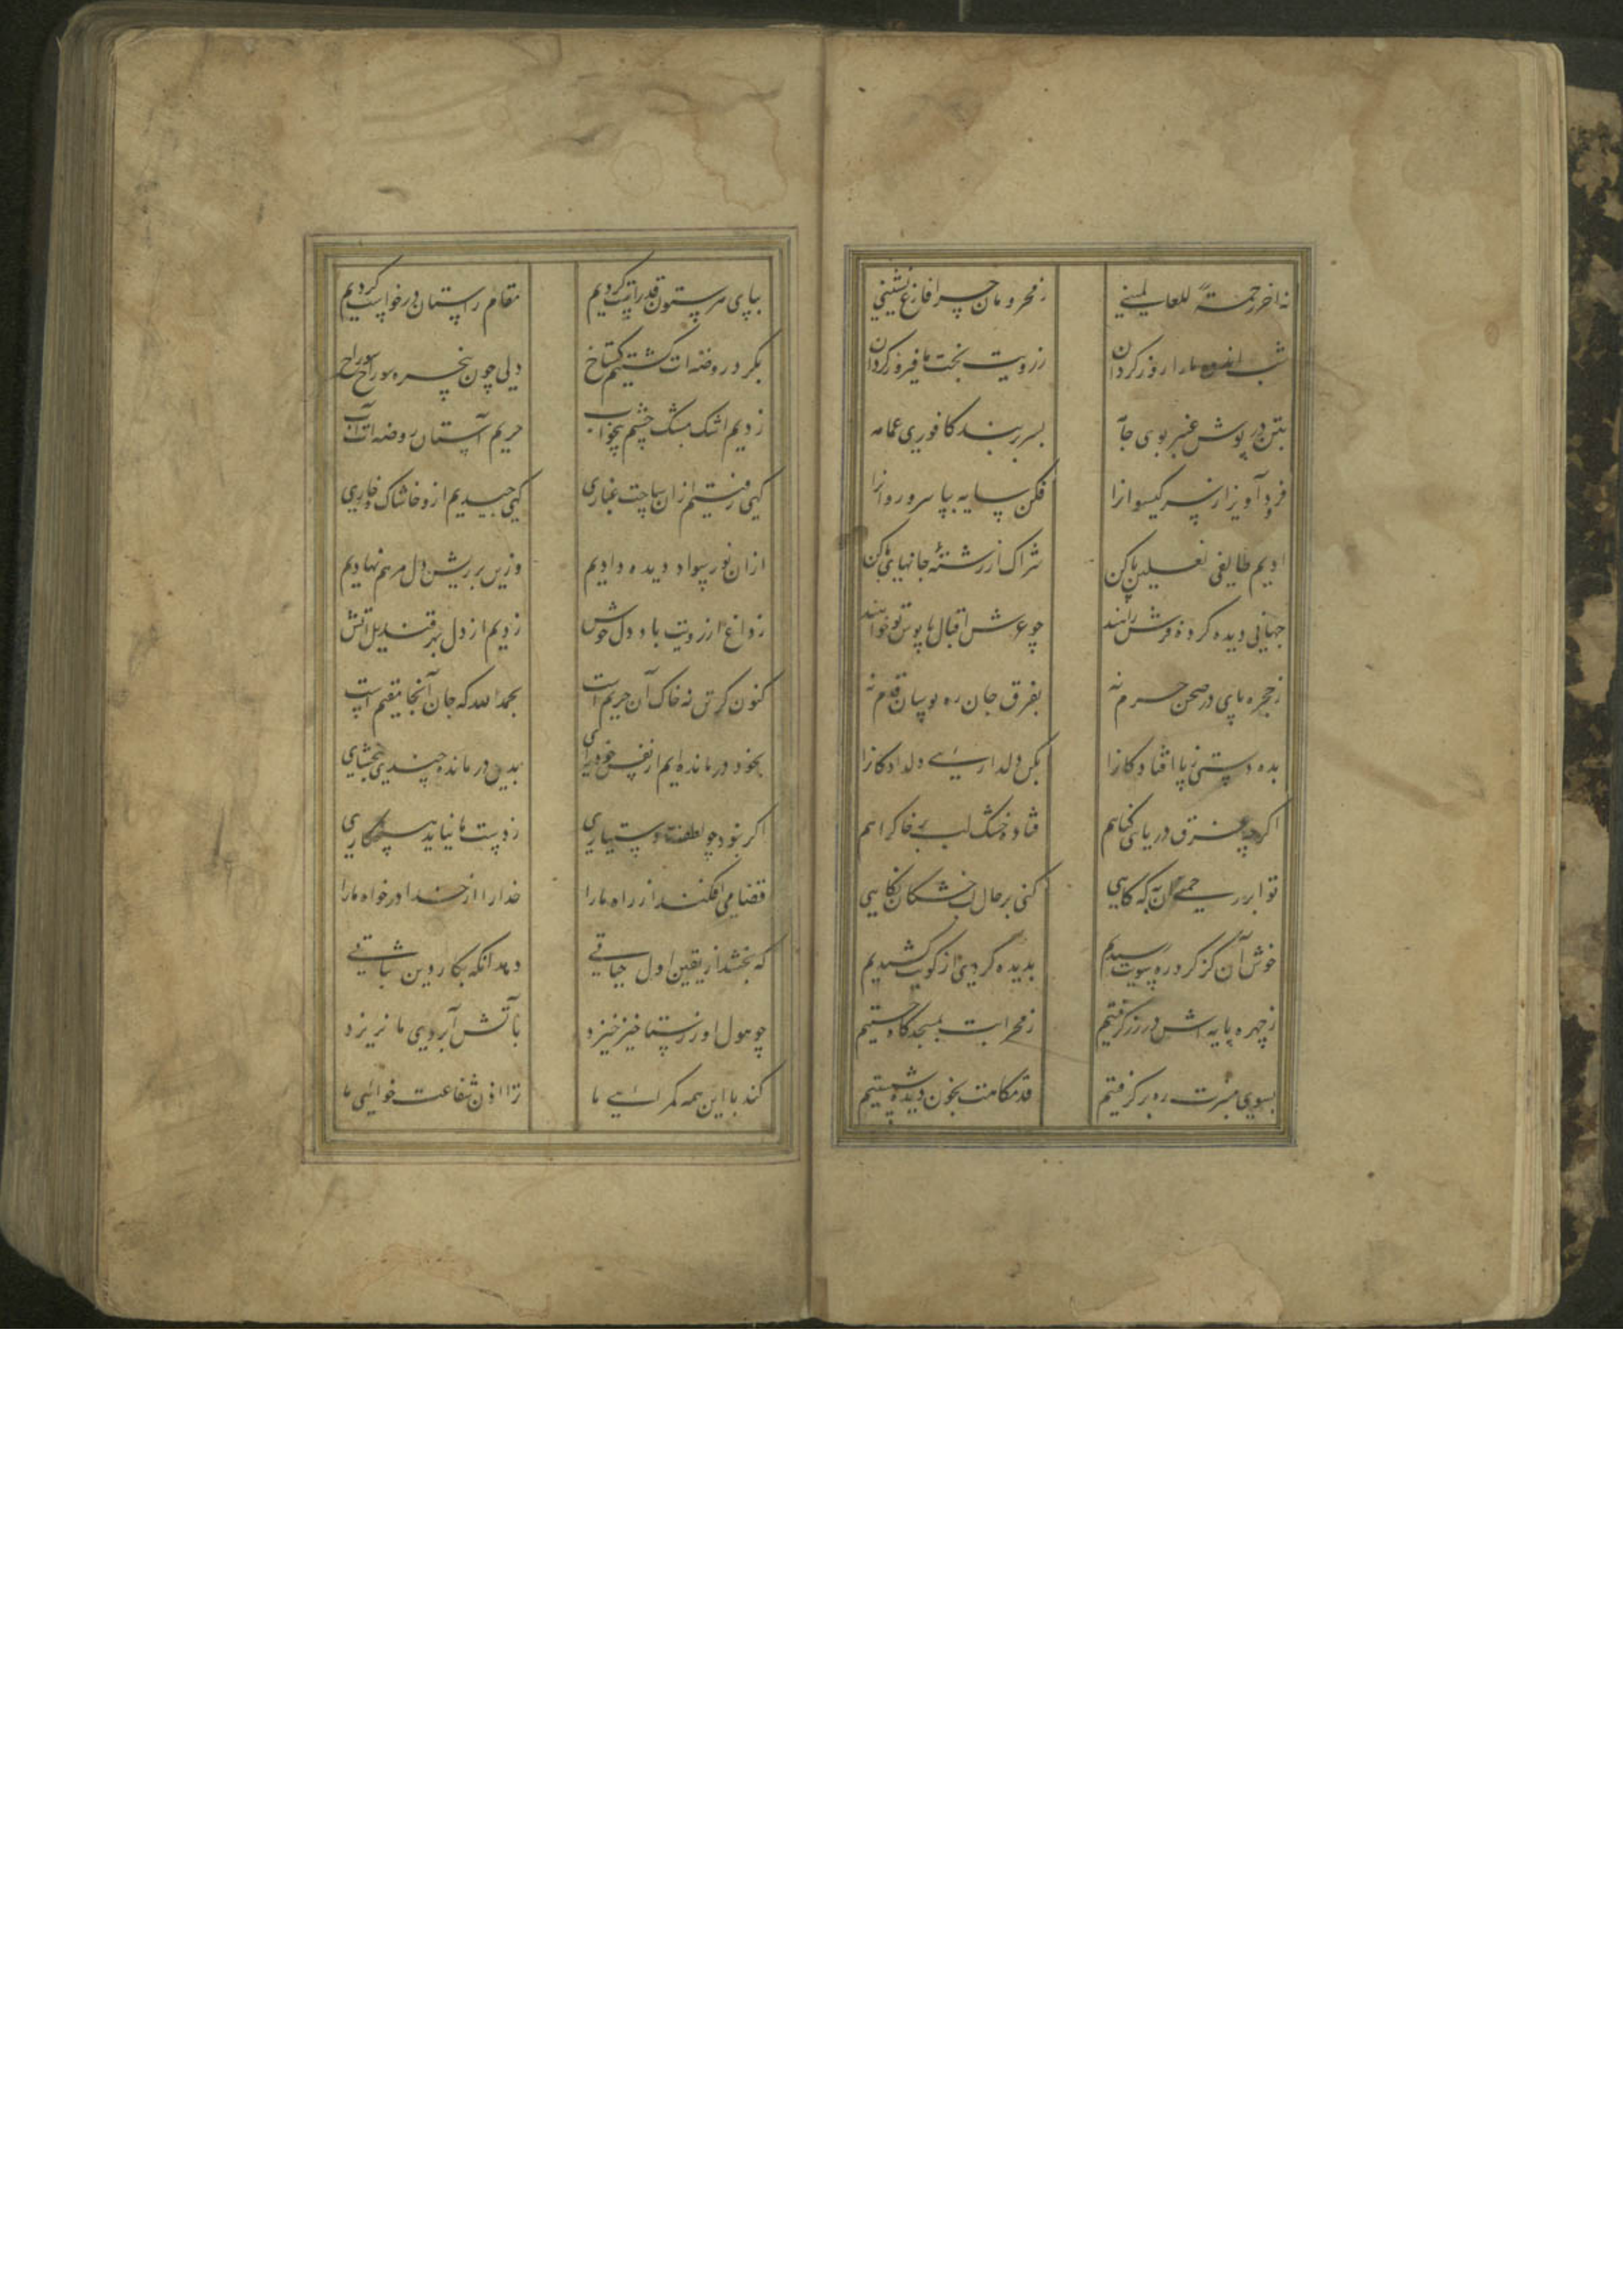 نه اخر رحمة للعالمینی ز محرومان چرا فارغ نشینی
شب اندوه ما را روز کردان ز رویت بخت ما فیروز کردان
بتن در پوش عنبر بوی جا بسر بربند کافوری عمامه
فرود آویز از سر کیسوانرا فکن سایه بپا سرو روانرا
ادیم طایفی نعلین پا کن شراک از رشتهٔ جانهای ما کن
جهانی دیده کرده فرش راهند چو عرش اقبال پابوس تو خواهند
ز حجره پای در صحن حرم نه بفرق جان ره بوسان قدم نه
بده دستی ز پا افتادکانرا بکن دلداریی دلدادکانرا
اکرچه غرق دریای کناهیم فتاده خشک لب بر خاک راهیم
تو ابر رحمتی آن به که کاهی کنی بر حال لب خشکان نکاهی
خوش آن کز کرد ره سویت رسیدیم بدیده کردی از کویت کشیدیم
ز چهره پایه اش در زر کرفتیم ز محرابت بسجده کام جستیم
بسوی منبرت ره بر کرفتیم قدمکاهت بخون دیده شستیم
بپای هر ستون قد راست کردیم مقام راستان درخواست کردیم
بکرد روضه ات کشتیم کستاخ دلی چون پنجره سوراخ سوراخ
زدیم اشک ز چشم بیخواب حریم آستان روضه ات آب
کهی رفتیم ازان ساحت غباری کهی چیدیم ازو خاشاک و خاری
ازان نور سواد دیده دادیم وزین بر ریش دل مرهم نهادیم
ز داغ آرزویت با دل خوش زدیم از دل بهر قندیل آتش
کنون کر تن نه خاک آن حریم است بحمد الله که جان آنجا مقیم است
بخود درمانده ایم از نفس خودرای بدین درمانده چندی ببخشای
اکر نبود چو لطفت دستیاری ز دست ما نیاید هیچ کاری
قضا می افکند از راه ما را خدا را از خدا درخواه ما را
که بخشد از یقین اول حیاتی دهد آنکه بکار دین ثباتی
چو هول روز رستاخیز خیزد بآتش آبروی ما نریزد
کند با این همه کمراهی ما ترا اذن شفاعت خواهی ما